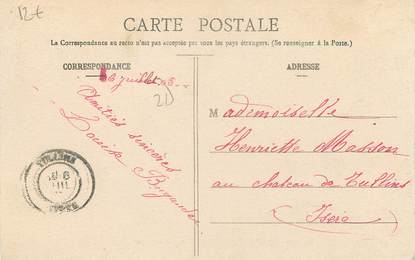 12€
CARTE POSTALE
La Correspondance au recto n'est pas acceptée par tous les pays étrangers. (Se renseigner à la Poste.)
CORRESPONDANCE
ADRESSE
juillet 08
2D
Amitiés sincères
Louise
Mademoiselle
Henriette Masson
au chateau de Tullins
Isère